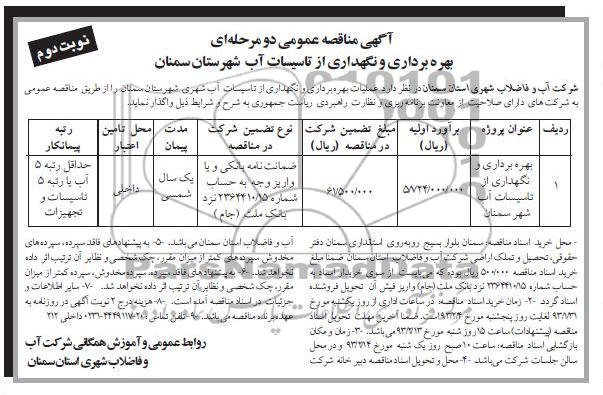 آگهی مناقصه عمومی دو مرحله‌ای
نوبت دوم
بهره برداری و نگهداری از تاسیسات آب شهرستان سمنان
شرکت آب و فاضلاب شهری استان سمنان در نظر دارد عملیات بهره‌برداری و نگهداری از تاسیسات آب شهری شهرستان سمنان را از طریق مناقصه عمومی
به شرکت های دارای صلاحیت از معاونت برنامه ریزی و نظارت راهبردی ریاست جمهوری به شرح و شرایط ذیل واگذار نماید.
ردیف
عنوان پروژه
برآورد اولیه (ریال)
مبلغ تضمین شرکت در مناقصه (ریال)
نوع تضمین شرکت در مناقصه
مدت پیمان
محل تامین اعتبار
رتبه پیمانکار
۱
بهره برداری و نگهداری از تاسیسات آب شهر سمنان
۵۷۲۴/۰۰۰/۰۰۰
۶۱/۵۰۰/۰۰۰
ضمانت نامه بانکی و یا واریز وجه به حساب شماره ۲۳۶۴۴۱۰/۱۵ نزد بانک ملت (جام)
یک سال شمسی
داخلی
حداقل رتبه ۵ آب یا رتبه ۵ تاسیسات و تجهیزات
- محل خرید اسناد مناقصه: سمنان بلوار بسیج روبه‌روی استانداری سمنان دفتر
حقوقی، تحصیل و تملک اراضی شرکت آب و فاضلاب استان سمنان ضمنا مبلغ
۵۰۰/۰۰۰ ریال بوده که می‌بایست از سوی خریدار اسناد به
حساب شماره ۲۳۶۴۴۱۰/۱۵ نزد بانک ملت (جام) واریز فیش آن تحویل فروشنده
اسناد گردد. ۲- زمان خرید اسناد مناقصه: در ساعات اداری از روز یکشنبه مورخ
۹۳/۸/۳۱ لغایت روز پنجشنبه مورخ ضمنا آخرین مهلت تحویل اسناد
مناقصه (پیشنهادات) ساعت ۱۵ روز شنبه مورخ می‌باشد. ۳- زمان و مکان
بازگشایی اسناد مناقصه: ساعت ۱۰ صبح روز یک شنبه مورخ و در محل
سالن جلسات شرکت می‌باشد. ۴- محل و تحویل اسناد مناقصه دبیر خانه شرکت
آب و فاضلاب استان سمنان می‌باشد. ۵- به پیشنهادهای فاقد سپرده، سپرده‌های
مخدوش سپرده‌های کمتر از میزان مقرر، چک شخصی و نظایر آن ترتیب اثر داده
نخواهد شد. ۶- به پیشنهادهای فاقد سپرده، سپرده مخدوش، سپرده کمتر از میزان
مقرر، چک شخصی و نظایر آن ترتیب اثر داده نخواهد شد. ۷- سایر اطلاعات و
جزئیات در اسناد مناقصه آمده است. ۸- هزینه درج ۲ نوبت آگهی در روزنامه به
عهده برنده مناقصه می‌باشد. ۹- تلفن تماس: داخلی ۲۱۲
روابط عمومی و آموزش همگانی شرکت آب
و فاضلاب شهری استان سمنان